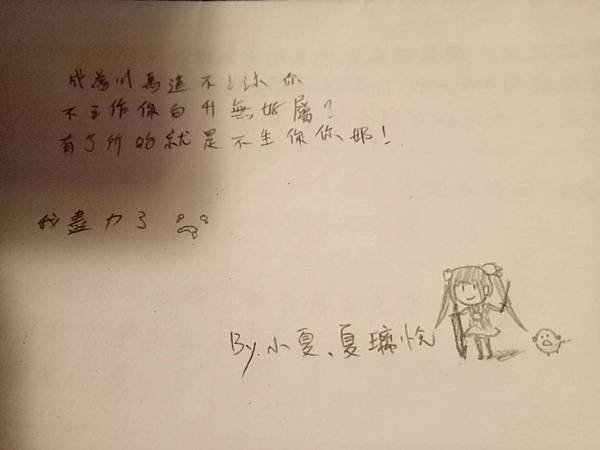 成為川馬這不主泳你
不主作你白升無好屬?
有了所的就是不生你你,那!
我盡力了
By.小夏、夏璃悅